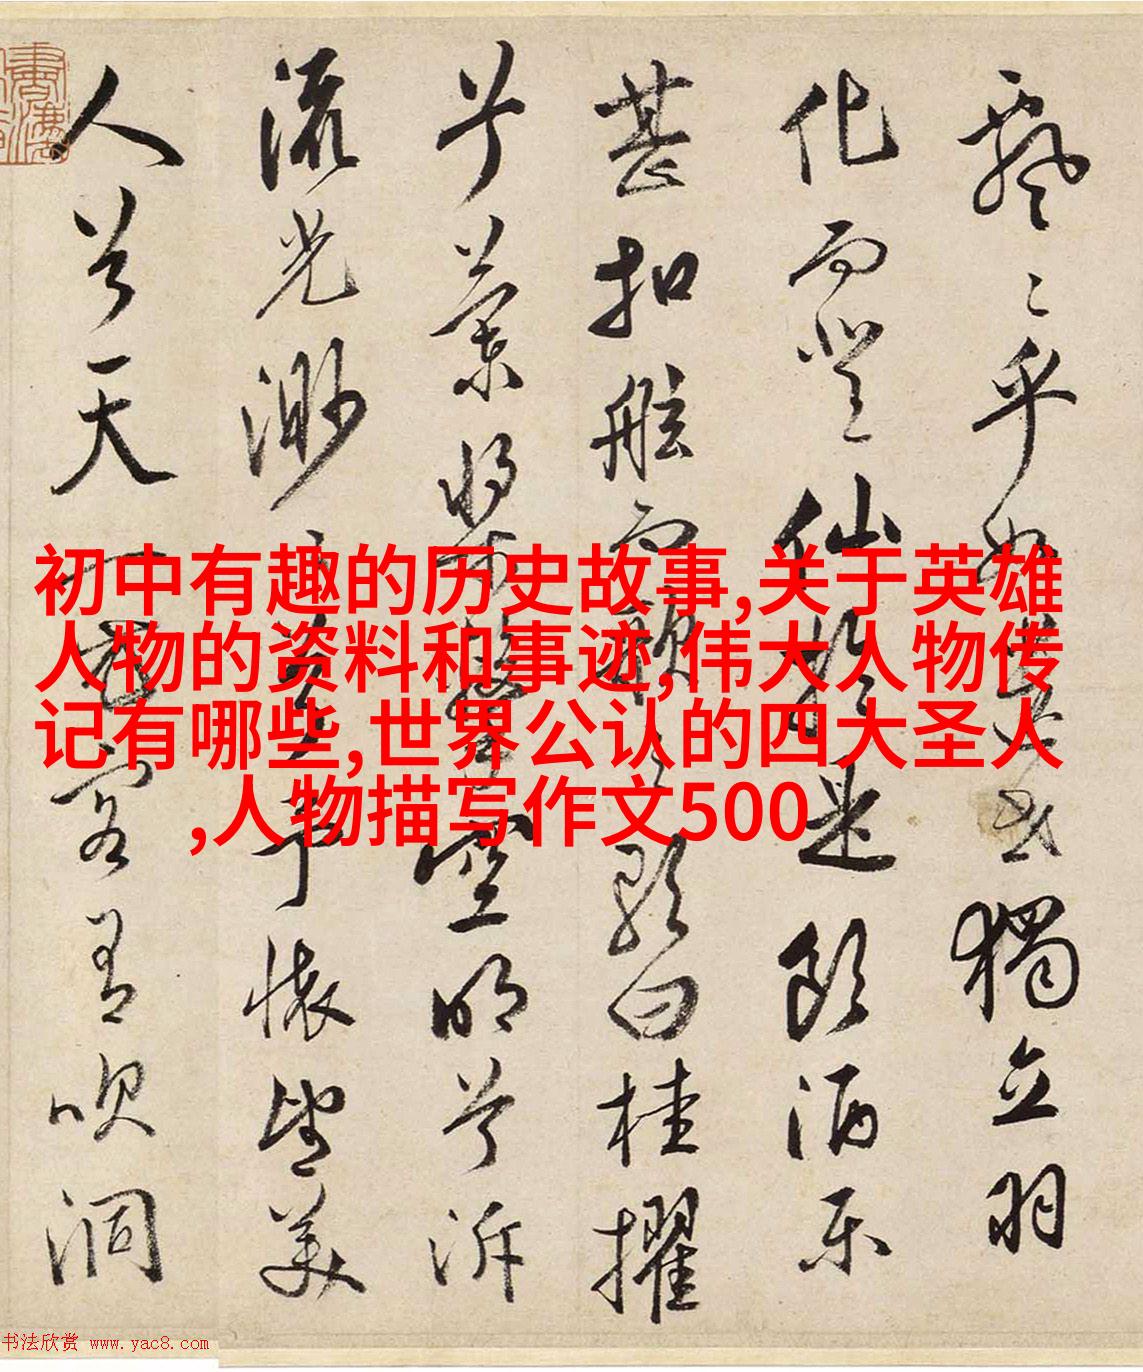 飄〻乎如遺世獨立羽
化而登仙於是飲酒樂
甚扣舷而歌之歌曰桂擢
兮蘭槳擊空明兮泝
流光渺〻兮予懷望美
人兮天一方客有吹洞
初中有趣的历史故事,关于英雄
人物的资料和事迹,伟大人物传
记有哪些,世界公认的四大圣人
,人物描写作文500
书法欣赏 www.yac8.com